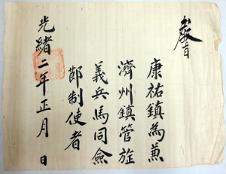 敎旨
康祐鎭爲兼
濟州鎭管旌
義兵馬同僉
節制使者
光緖二年正月　日